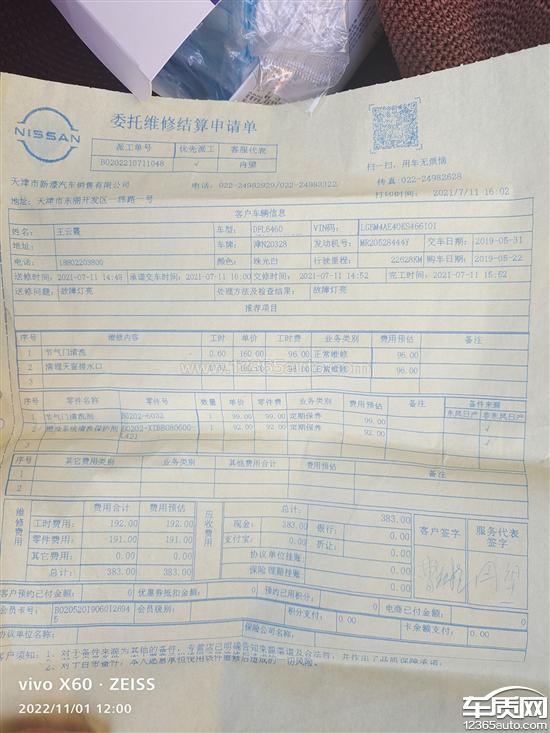 NISSAN
委托维修结算申请单
派工单号 优先派工 客服代表
BO202210711048 √ 肖望
扫一扫，用车无烦恼
天津市新濠汽车销售有限公司 电话：022-24982929/022-24983322 传真:022-24982628
地址：天津市东丽开发区一纬路一号 打印时间：2021/7/11 16:02
客户车辆信息
姓名: 王云霞 车型: DFL6460 VIN码:
地址: 车牌: 津N20328 发动机号: MR20528444Y 交车日期: 2019-05-31
电话: 18802203800 颜色: 珠光白 行驶里程: 22628KM 购车日期: 2019-05-22
送修时间: 2021-07-11 14:48 承诺交车时间: 2021-07-11 16:00 交修时间: 2021-07-11 14:52 完工时间: 2021-07-11 15:52
送修问题: 故障灯亮 处理方法及检查结果: 故障灯亮
推荐项目
序号 维修内容 工时 单价 工时费 业务类别 费用预估 备注
1 节气门清洗 0.60 160.00 96.00 正常维修 96.00
2 清理天窗排水口 96.00 正常维修 96.00
3
www.12365auto.com
序号 零件名称 零件号 数量 单价 零件费 业务类别 费用预估 备注 备件来源
东风日产 非东风日产
1 节气门清洗剂 BO202-6032 1 99.00 99.00 定期保养 99.00 √
2 燃油系统清洗保护剂 1 92.00 92.00 定期保养 92.00 √
3
序号 其它费用类别 业务类别 其他费用预估 备注
1
2
维修费用 费用合计 费用预估 应收费用 总计: 383.00 客户签字 服务代表签字
工时费用: 192.00 192.00 现金: 383.00 银行: 0.00
零件费用: 191.00 191.00 支付宝: 0.00 折让: 0.00
其它费用: 0.00 0.00 协议单位挂账 0.00
总计: 383.00 383.00 保险理赔挂账 0.00
客户预约已付金额: 0 优惠券抵扣金额: 0 预约已用积分: 0 电商已付金额: 0
会员卡号: BO2052019060126945 会员级别: 积分支付: 0.00 卡余额支付: 0.00
协议单位名称: 保险公司名称:
客户须知: 1、对于备件来源为其他的备件，专营店已明确告知来源渠道及合法性，并作出了品质保障承诺。
2、对于自带备件，本人愿意承担使用该件维修后造成的一切风险。
vivo X60 · ZEISS
2022/11/01 12:00
车质网
12365auto.com